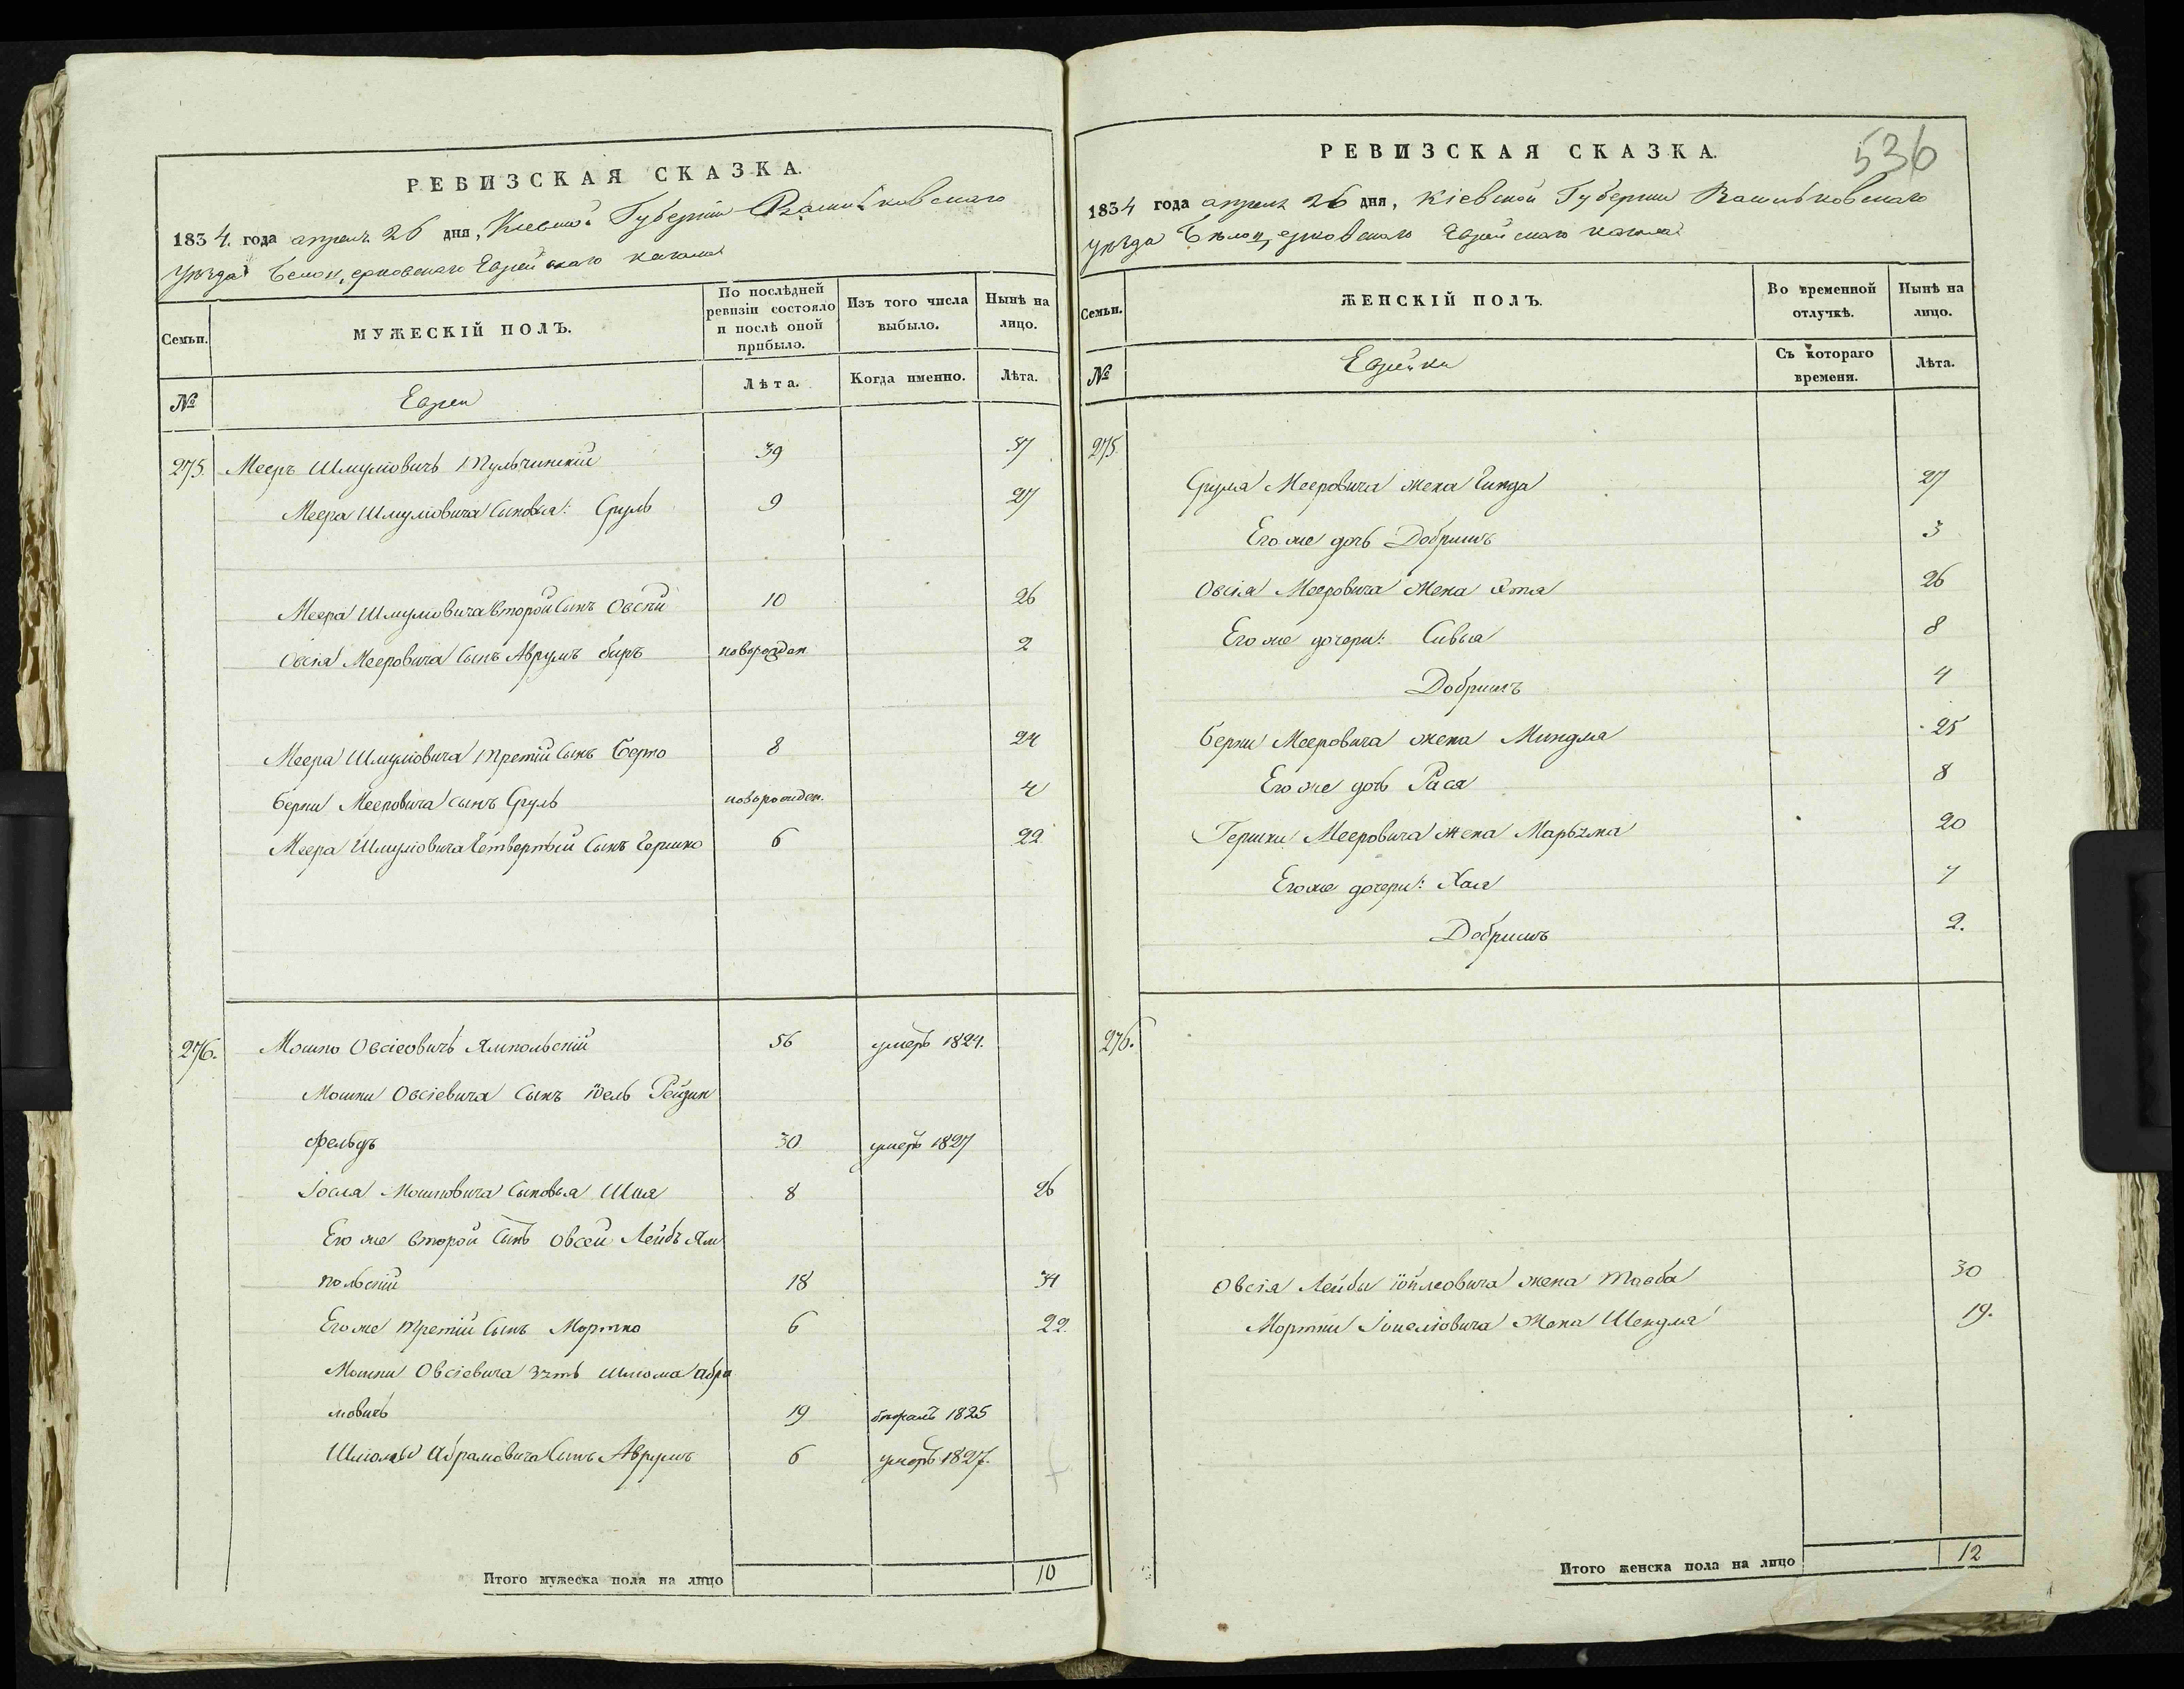 РЕВИЗСКАЯ СКАЗКА.
1834. года апреля 26 дня, Кіевской Губерніи Васильковскаго
уѣзда Белоцерковскаго Еврейскаго кагала
Семьи.
МУЖЕСКІЙ ПОЛЪ.
По послѣдней ревизіи состояло и послѣ оной прибыло.
Изъ того числа выбыло.
Нынѣ на лицо.
№
Евреи
Лѣта.
Когда именно.
Лѣта.
275. Мееръ Шмулiовичъ Тульчинскій 39 57
Меера Шмулiовича Сыновья: Сруль 9 27
Меера Шмулiовича второй Сынъ Овсѣй 10 26
Овсія Мееровича Сынъ Аврумъ беръ новорожден 2
Меера Шмулiовича третій Сынъ Берко 8 24
Берки Мееровича сынъ Сруль новорожден. 4
Меера Шмулiовича Четвертый Сынъ Гершко 6 22
276. Мошко Овсіевичъ Ямпольскій 56 умеръ 1824.
Мошки Овсіевича Сынъ Іось Рейдин
фельдъ 30 умеръ 1827
Іосля Мошковича Сыновья Шая 8 26
Его же второй Сынъ Овсей Лейбъ Ям
польскій 18 34
Его же третій Сынъ Мортко 6 22.
Мошки Овсіевича зять Шлiома Абра
мовичъ 19 1825
Шлiомы Абрамовича Сынъ Аврумъ 6 умеръ 1827.
Итого мужеска пола на лицо 10
536
РЕВИЗСКАЯ СКАЗКА.
1834 года апреля 26 дня, Кіевской Губерніи Васильковскаго
уѣзда Бѣлоцерковскаго Еврейскаго кагала
Семьи.
ЖЕНСКІЙ ПОЛЪ.
Во временной отлучкѣ.
Нынѣ на лицо.
№
Еврейки
Съ котораго времени.
Лѣта.
275
Сруля Мееровича жена Гинда 27
Его же дочь Добришъ 3
Овсія Мееровича Жена Ета 26
Его же дочери: Сивья 8
Добришъ 4
Берки Мееровича жена Миндля 25
Его же дочь Рася 8
Гершки Мееровича жена Марьяма 20
Его же дочери: Хая 7
Добришъ 2.
276.
Овсія Лейбы жена Тауба 30
Мортки Жена Шендля 19.
Итого женска пола на лицо 12